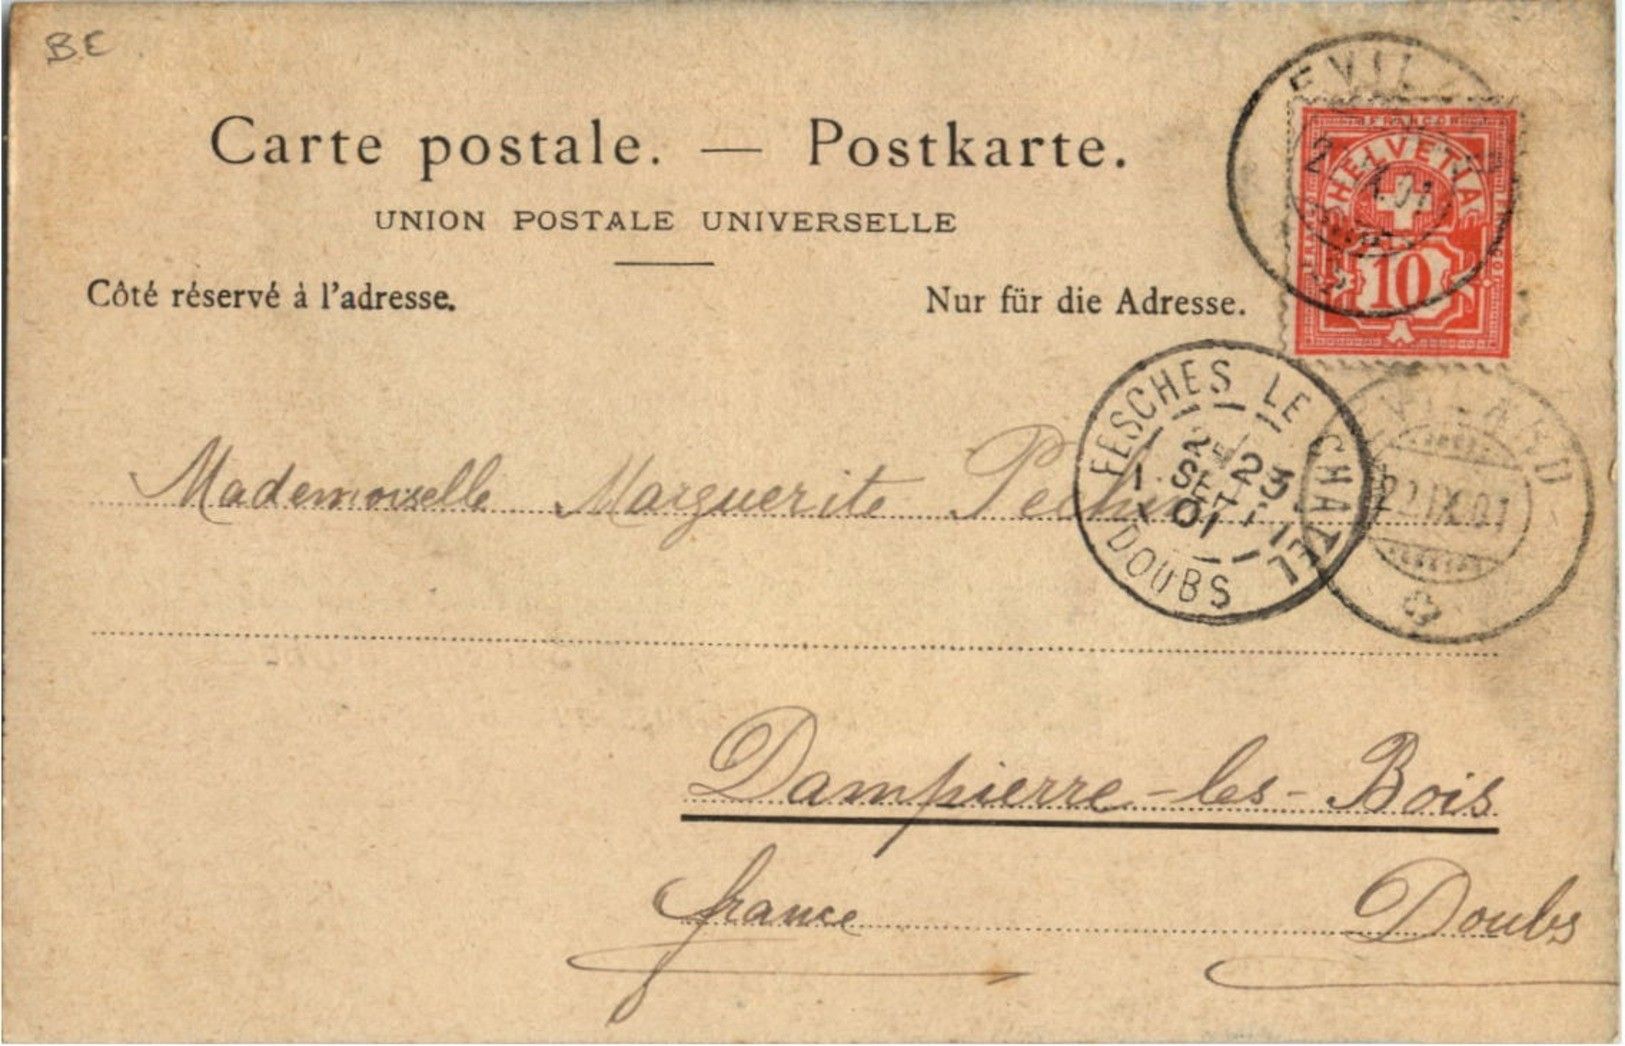 BE
Carte postale. — Postkarte.
UNION POSTALE UNIVERSELLE
Côté réservé à l'adresse. Nur für die Adresse.
FRANCO
HELVETIA
10
FESCHES LE CHATEL
23
SEPT
01
DOUBS
EVILARD
22.IX.01
Mademoiselle Marguerite Pechin
Dampierre-les-Bois
france Doubs